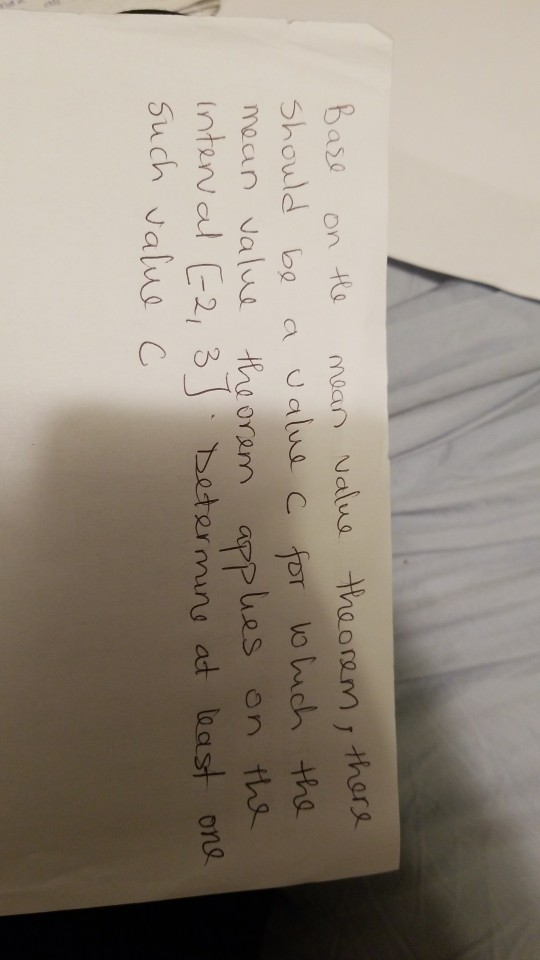 Base on the mean value theorem, there
should be a value c for which the
mean value theorem applies on the
interval [-2, 3]. Determine at least one
such value C